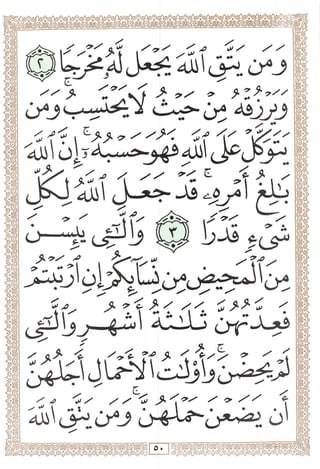 وَمَن يَتَّقِ ٱللَّهَ يَجْعَل لَّهُۥ مَخْرَجًا ٢
وَيَرْزُقْهُ مِنْ حَيْثُ لَا يَحْتَسِبُ ۚ وَمَن
يَتَوَكَّلْ عَلَى ٱللَّهِ فَهُوَ حَسْبُهُۥٓ ۚ إِنَّ ٱللَّهَ
بَـٰلِغُ أَمْرِهِۦ ۚ قَدْ جَعَلَ ٱللَّهُ لِكُلِّ
شَىْءٍ قَدْرًا ٣ وَٱلَّـٰٓـِٔى يَئِسْنَ
مِنَ ٱلْمَحِيضِ مِن نِّسَآئِكُمْ إِنِ ٱرْتَبْتُمْ
فَعِدَّتُهُنَّ ثَلَـٰثَةُ أَشْهُرٍ وَٱلَّـٰٓـِٔى
لَمْ يَحِضْنَ ۚ وَأُو۟لَـٰتُ ٱلْأَحْمَالِ أَجَلُهُنَّ
أَن يَضَعْنَ حَمْلَهُنَّ ۚ وَمَن يَتَّقِ ٱللَّهَ
٥٠